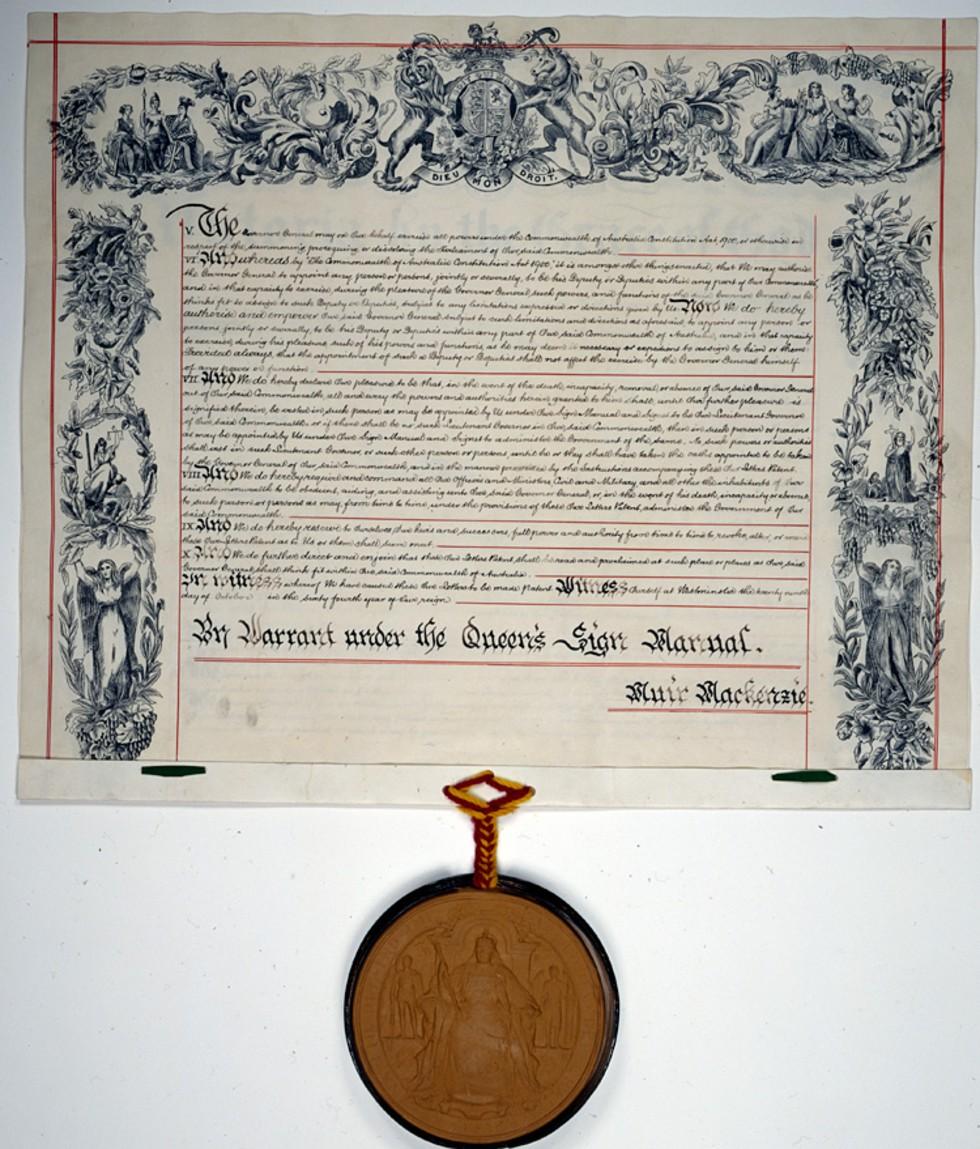 DIEU ET MON DROIT.
V. The Governor General may on Our behalf exercise all powers under the Commonwealth of Australia Constitution Act, 1900, or otherwise in
respect of the summoning, proroguing or dissolving the Parliament of Our said Commonwealth.
VI. And whereas by "The Commonwealth of Australia Constitution Act 1900," it is amongst other things enacted, that We may authorise
the Governor General to appoint any person or persons, jointly or severally, to be his Deputy or Deputies within any part of Our Commonwealth
and in that capacity to exercise, during the pleasure of the Governor General, such powers and functions of the said Governor General as he
thinks fit to assign to such Deputy or Deputies, subject to any limitations expressed or directions given by Us: Now We do hereby
authorise and empower Our said Governor General, subject to such limitations and directions as aforesaid, to appoint any person or
persons, jointly or severally, to be his Deputy or Deputies within any part of Our said Commonwealth of Australia, and in that capacity
to exercise, during his pleasure, such of his powers and functions, as he may deem it necessary or expedient to assign to him or them:
Provided always, that the appointment of such a Deputy or Deputies shall not affect the exercise by the Governor General himself
of any power or function.
VII. And We do hereby declare Our pleasure to be that, in the event of the death, incapacity, removal, or absence of Our said Governor General
out of Our said Commonwealth, all and every the powers and authorities herein granted to him shall, until Our further pleasure is
signified therein, be vested in such person as may be appointed by Us under Our Sign Manual and Signet to be Our Lieutenant Governor
of Our said Commonwealth: or if there shall be no such Lieutenant Governor in Our said Commonwealth, then in such person or persons
as may be appointed by Us under Our Sign Manual and Signet to administer the Government of the same. No such powers or authorities
shall vest in such Lieutenant Governor, or such other person or persons, until he or they shall have taken the oaths appointed to be taken
by the Governor General of Our said Commonwealth, and in the manner provided by the Instructions accompanying these Our Letters Patent.
VIII. And We do hereby require and command all Our Officers and Ministers, Civil and Military, and all other the inhabitants of Our
said Commonwealth to be obedient, aiding, and assisting unto Our said Governor General, or, in the event of his death, incapacity or absence,
to such person or persons as may, from time to time, under the provisions of these Our Letters Patent, administer the Government of Our
said Commonwealth.
IX. And We do hereby reserve to Ourselves, Our heirs and successors, full power and authority from time to time to revoke, alter, or amend
these Our Letters Patent as to Us or them shall seem meet.
X. And We do further direct and enjoin that these Our Letters Patent shall be read and proclaimed at such place or places as Our said
Governor General shall think fit within Our said Commonwealth of Australia.
In witness whereof We have caused these Our Letters to be made Patent. Witness Ourself at Westminster the twenty ninth
day of October in the sixty fourth year of Our reign.
By Warrant under the Queen's Sign Manual.
Muir Mackenzie.